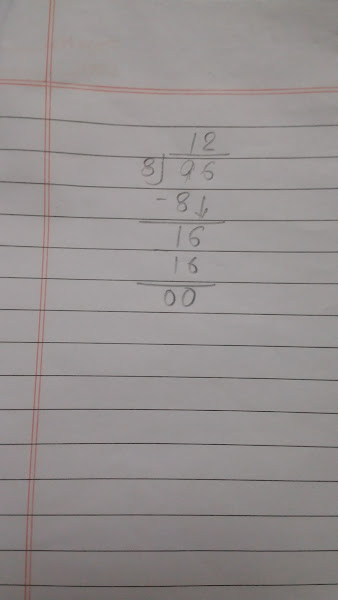 12
8) 96
-8↓
16
16
00